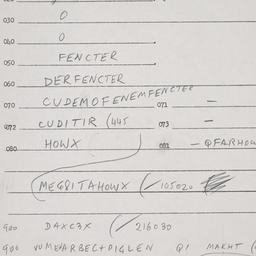 030 O
040 O
050 FENCTER
060 DERFENCTER
070 CUDEMOFENEMFENCTER 071 —
072 CUDITIR (445 073 —
080 HOWX 081 — QFARHOW
MEG8ITAHOWX (/105020
900 DAXC3X (/216030
900 QI MAKHT (